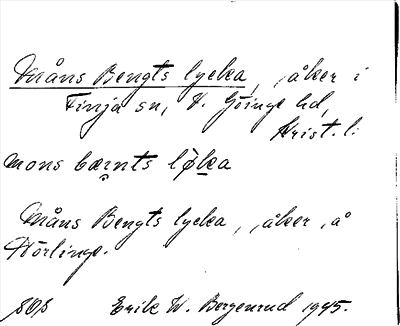 Måns Bengts lycka, åker i
Finja sn, V. Göinge hd,
Krist. l:
mons bærnts løka
Måns Bengts lycka, åker, å
Hörlinge.
Erik W. Bergenrud 1945.